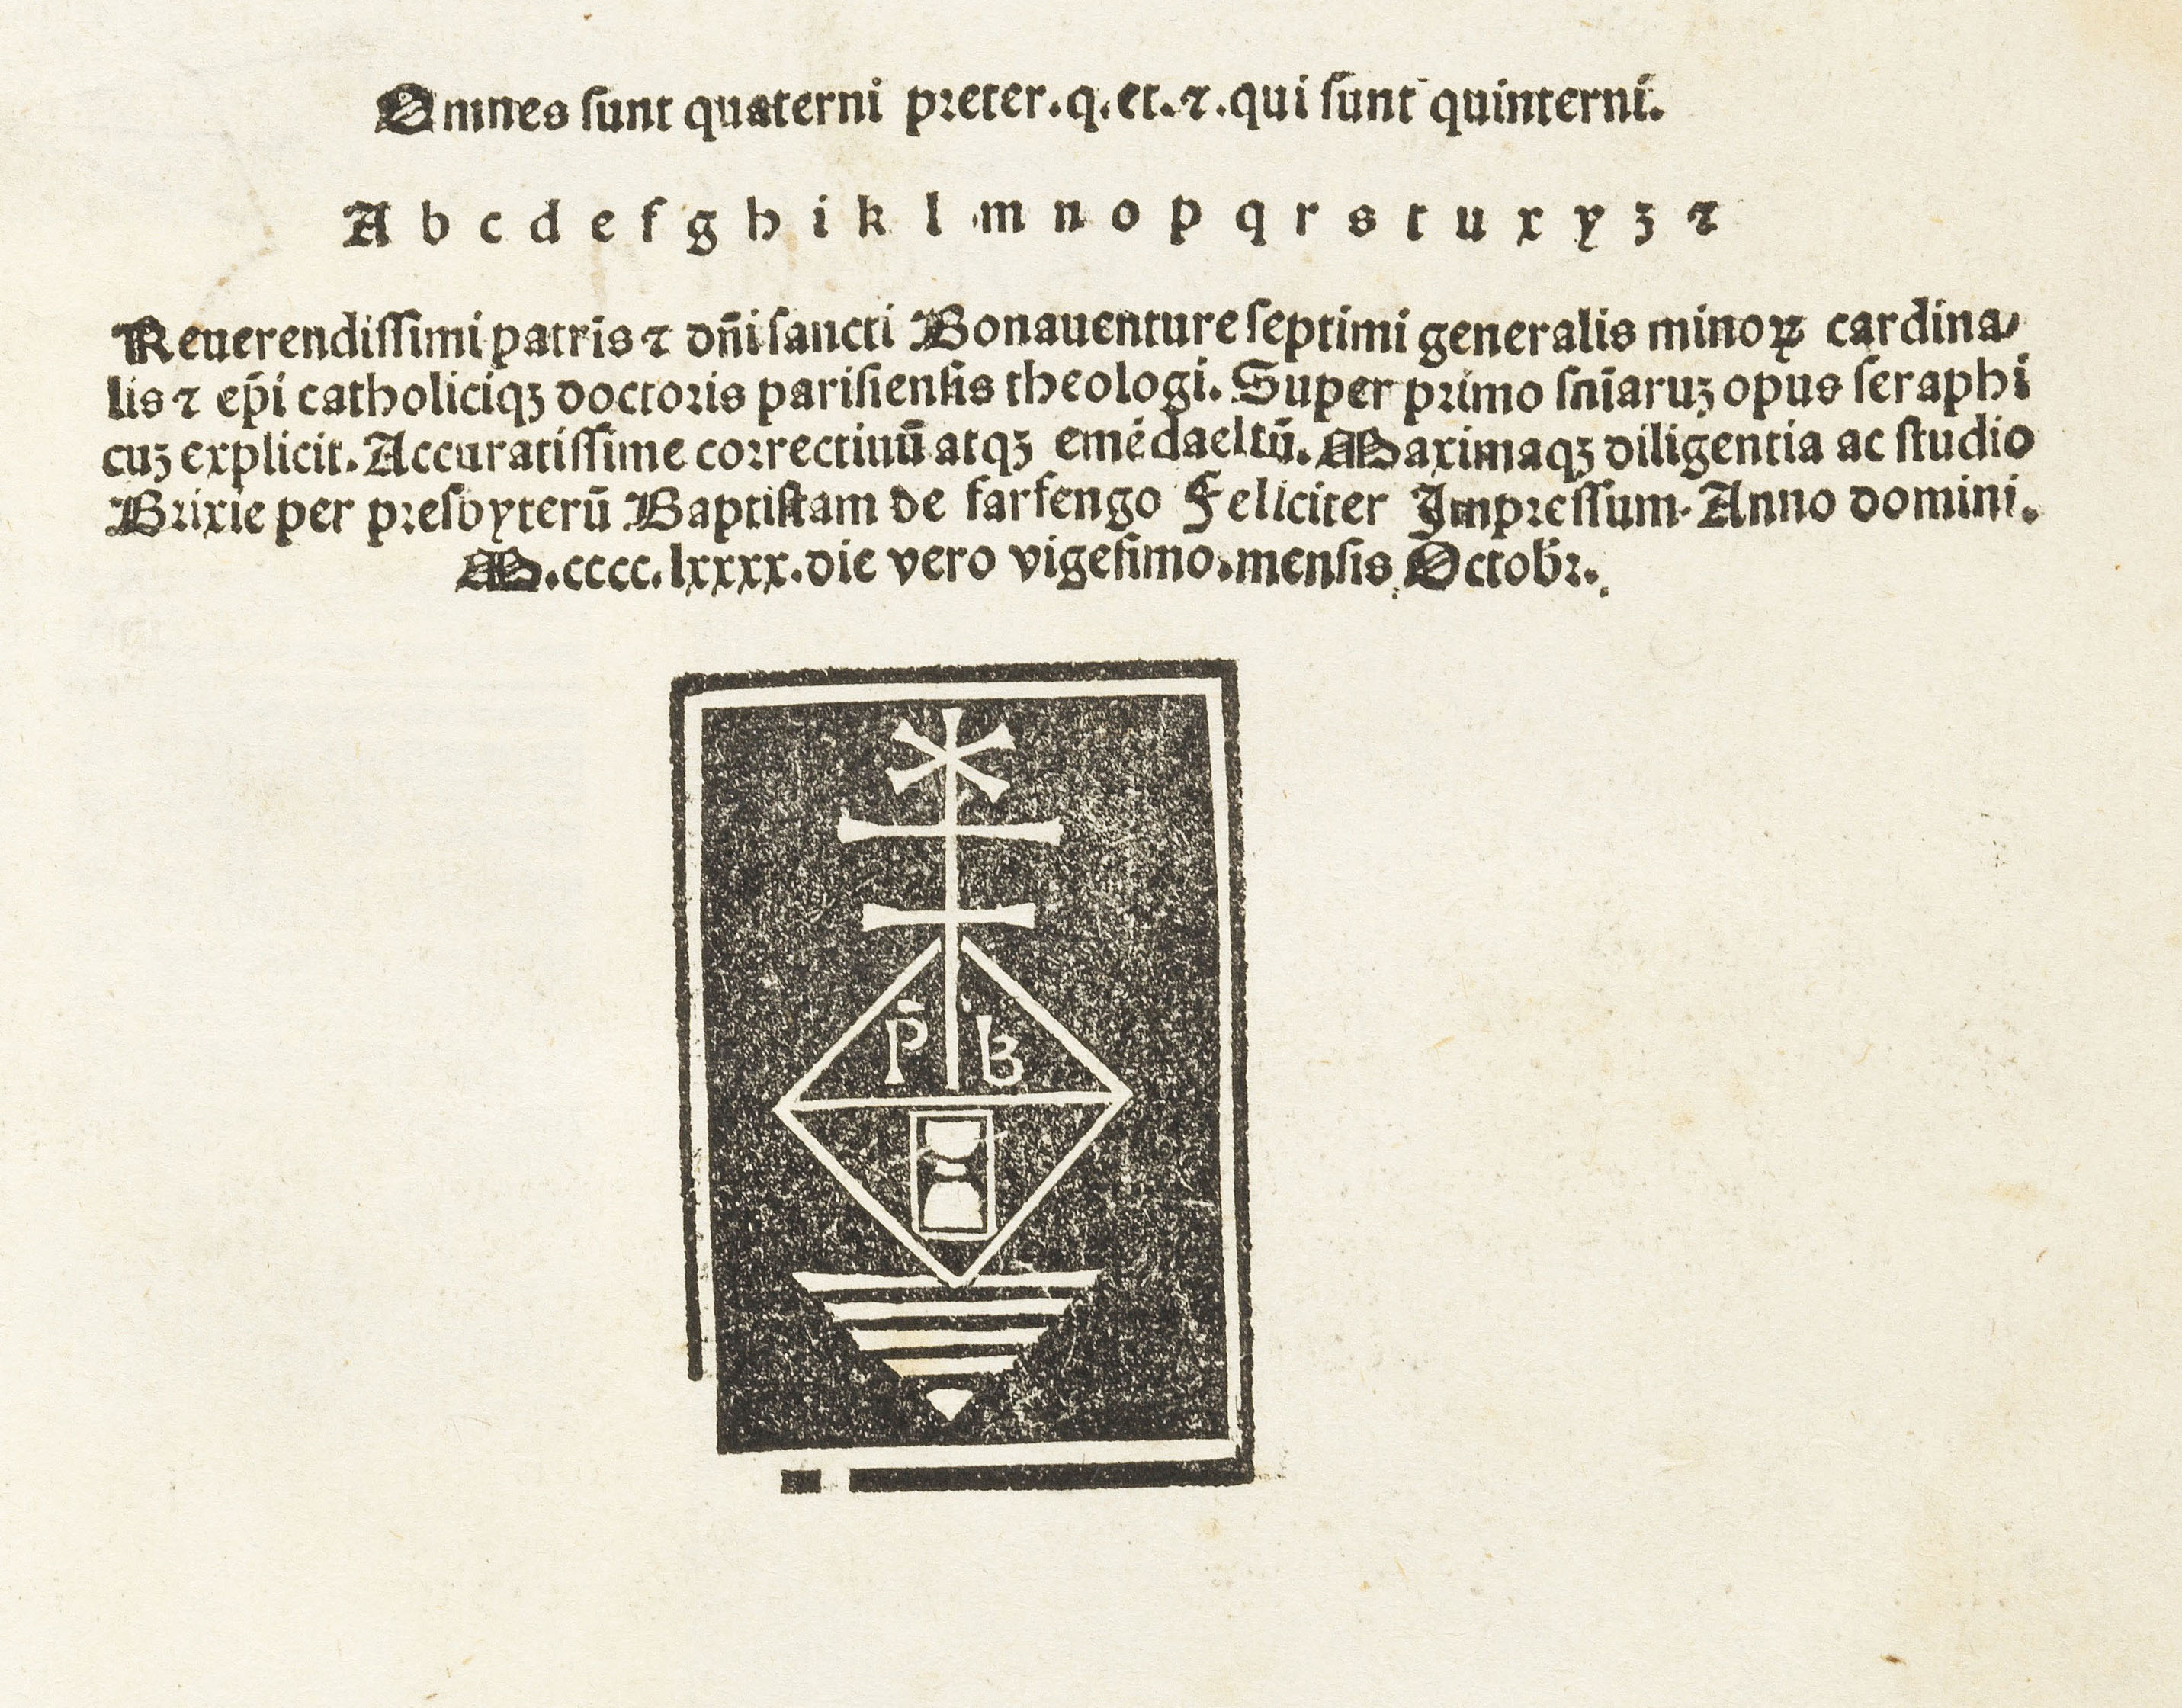 Omnes sunt quaterni preter.q.et.⁊.qui sunt quinterni.
A b c d e f g h i k l m n o p q r s t u x y z ⁊
Reuerendissimi patris ⁊ dñi sancti Bonauenture septimi generalis minoꝝ cardina⸗
lis ⁊ ep̄i catholiciqꝫ doctoris parisiensis theologi. Super primo sn̄iaruꝫ opus seraphi
cuꝫ explicit. Accuratissime correctiuū atqꝫ Maximaqꝫ diligentia ac studio
Brixie per presbyterū Baptistam de farfengo Feliciter Impressum. Anno domini.
M.cccc.lxxxx.die vero vigesimo.mensis Octobr̄.
P̄ B